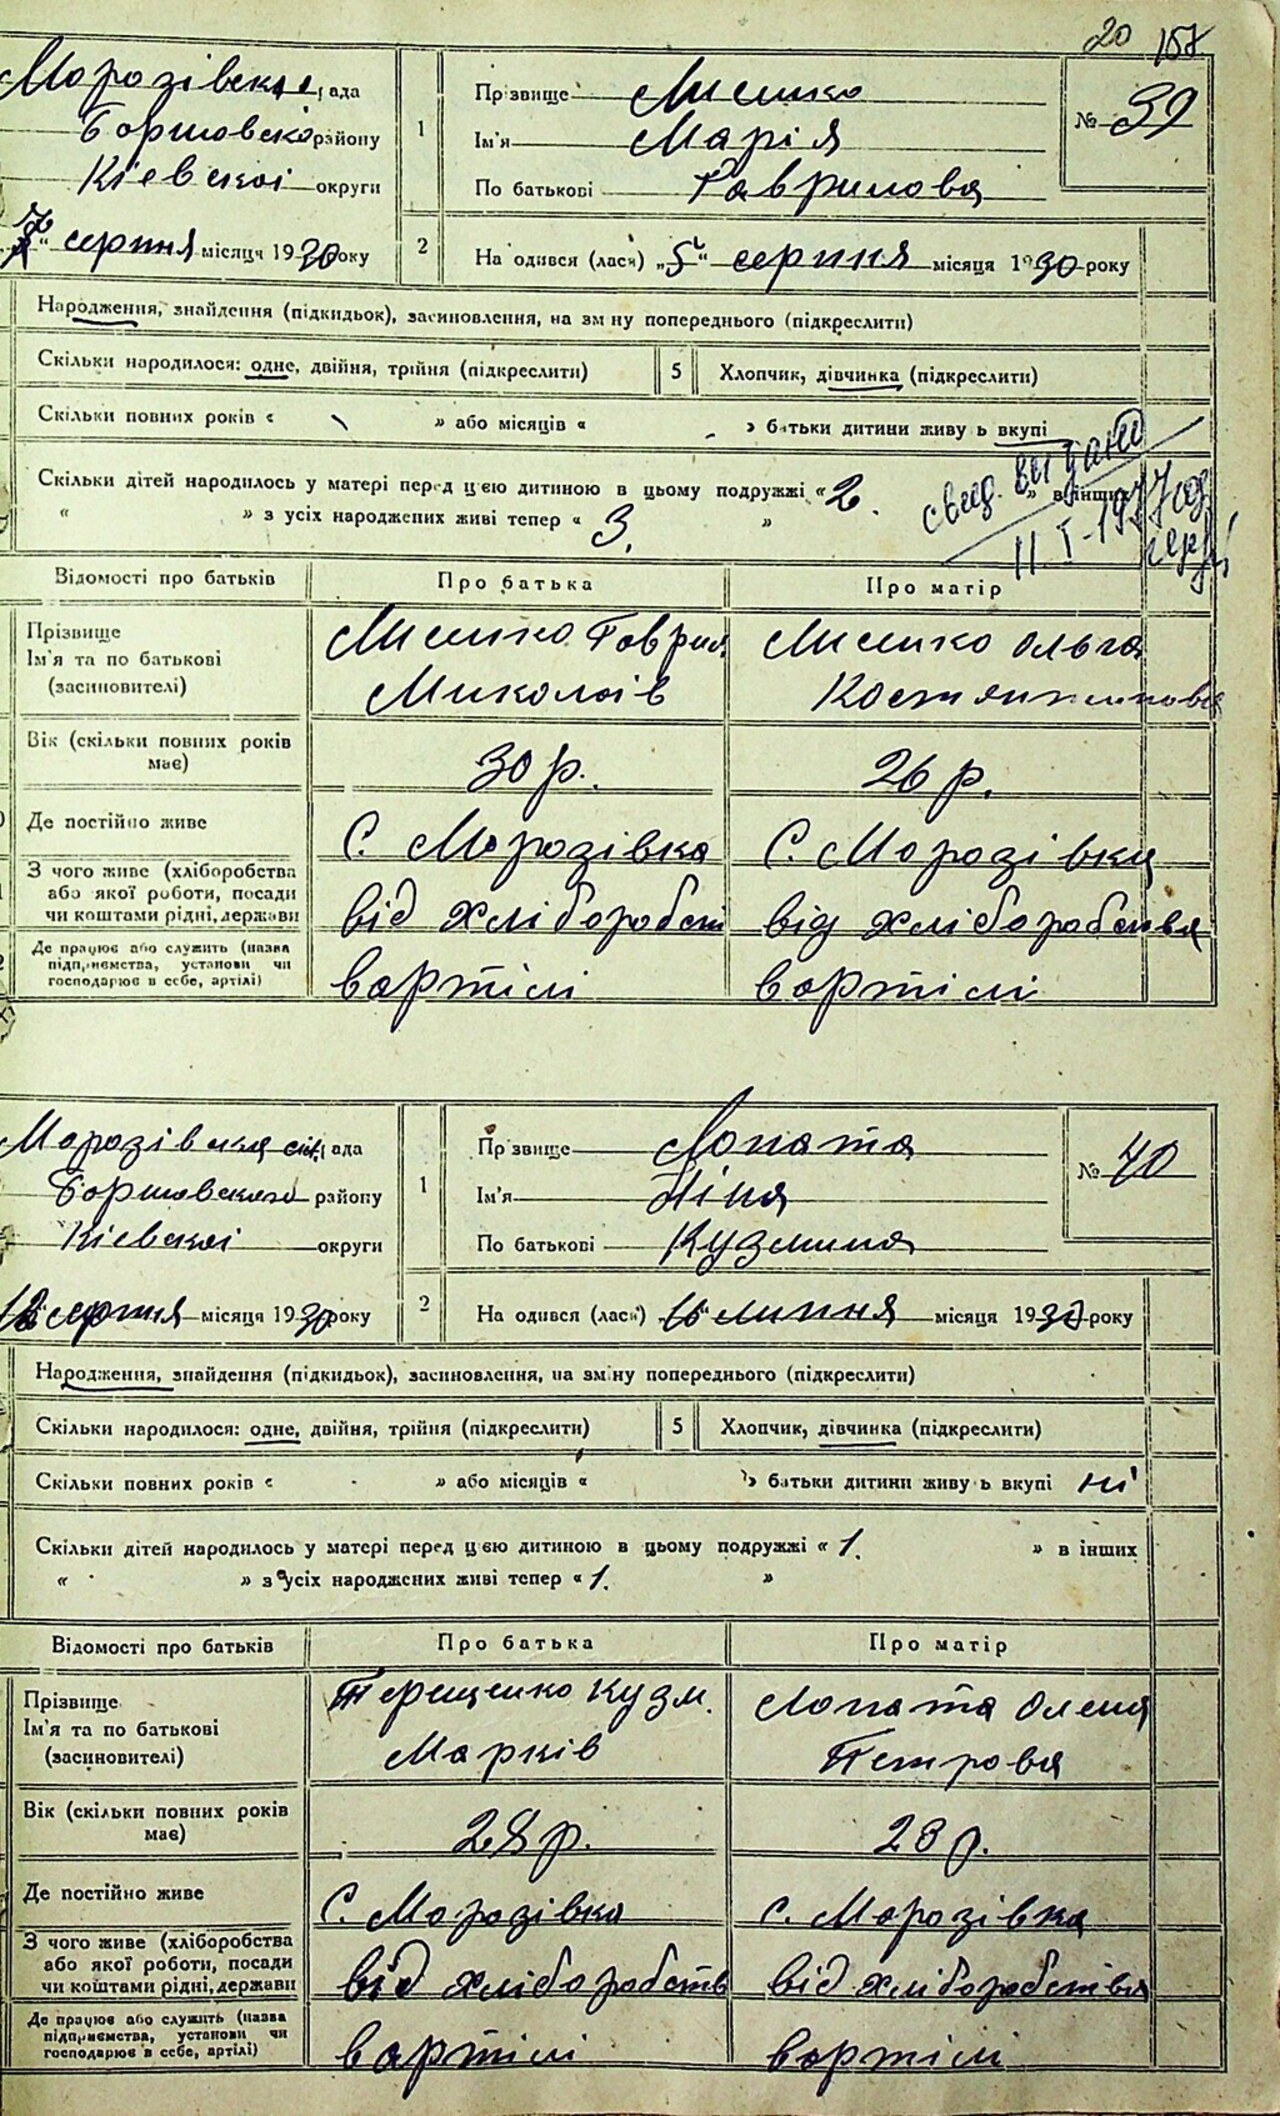 20 157
Морозівська рада
Боршовсько району
Кіевскоі округи
серпня місяця 1930 року
1
Прізвище Лисенко
Ім'я Марія
По батькові Гаврилова
№ 39
2
На одився (лася) „5" серпня місяця 1930 року
Народження, знайдення (підкидьок), засиновлення, на зм ну попереднього (підкреслити)
Скільки народилося: одне, двійня, трійня (підкреслити) 5 Хлопчик, дівчинка (підкреслити)
Скільки повних років « » або місяців « » батьки дитини живу ь вкупі
Скільки дітей народилось у матері перед цією дитиною в цьому подружжі « 2. » в інших
« » з усіх народжених живі тепер « 3. »
свид. видано
11 I-1977 год
Відомості про батьків Про батька Про матір
Прізвище
Ім'я та по батькові
(засиновителі)
Лисенко Гаврил.
Миколаів
Лисенко Ольга
Костянтинова
Вік (скільки повних років
має)
30 р. 26 р.
Де постійно живе С. Морозівка С. Морозівка
З чого живе (хліборобства
або якої роботи, посади
чи коштами рідні, держави
від хліборобст від хліборобства
Де працює або служить (назва
підприємства, установи чи
господарює в себе, артілі)
вортілі вортілі
Морозівська сіл. рада
Боршовського району
Кіевскоі округи
серпня місяця 1930 року
1
Пр звище Лопата
Ім'я Ніна
По батькові Кузмина
№ 40
2
На одився (лася) „16 липня місяця 1930 року
Народження, знайдення (підкидьок), засиновлення, на зм ну попереднього (підкреслити)
Скільки народилося: одне, двійня, трійня (підкреслити) 5 Хлопчик, дівчинка (підкреслити)
Скільки повних років « » або місяців « » батьки дитини живу ь вкупі ні
Скільки дітей народилось у матері перед цією дитиною в цьому подружжі « 1. » в інших
« » з усіх народжених живі тепер « 1. »
Відомості про батьків Про батька Про матір
Прізвище
Ім'я та по батькові
(засиновителі)
Терещенко Кузм.
Марків
Лопата Олена
Петрова
Вік (скільки повних років
має)
28 р. 23 р.
Де постійно живе С. Морозівка с. Морозівка
З чого живе (хліборобства
або якої роботи, посади
чи коштами рідні, держави
від хліборобств від хліборобства
Де працює або служить (назва
підприємства, установи чи
господарює в себе, артілі)
вортілі вортілі